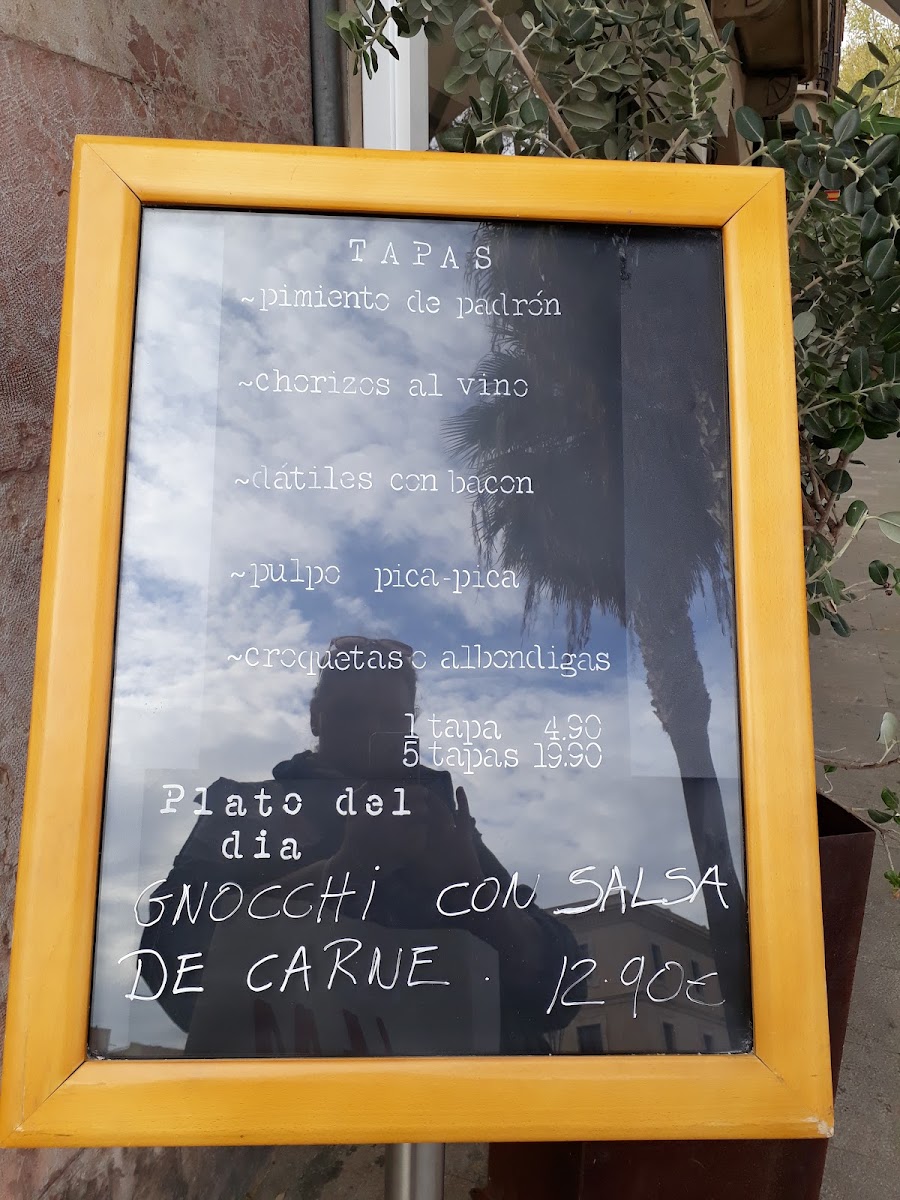 TAPAS
~pimiento de padrón
~chorizos al vino
~dátiles con bacon
~pulpo pica-pica
~croquetas o albondigas
1 tapa 4.90
5 tapas 19.90
Plato del
dia
GNOCCHi CON SALSA
DE CARNE. 12.90€